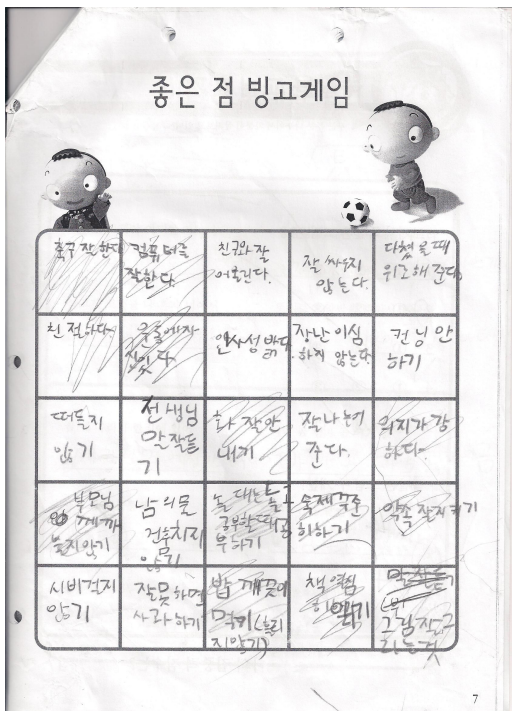 좋은 점 빙고게임
축구 잘 한다
컴퓨터를
잘한다.
친구와 잘
어울린다.
잘 싸우지
않는다.
다쳤을 때
위로해 준다.
친절하다.
인사성 밝다.
장난이 심
하지 않는다.
컨닝 안
하기
떠들지
않기
선생님
말 잘듣
기
화 잘 안
내기
잘 나누어
준다.
의지가 강
하다.
부모님
께
놀 때는 놀고
공부할 때 공
부하기
숙제 꾸준
히하기
약속 잘 지키기
남의 물
건 훔치지
않기
시비걸지
않기
잘못하면
사과하기
밥 깨끗이
먹기(흘리
지않기)
책 열심
히 읽기
그림 잘 그
리는 것
7